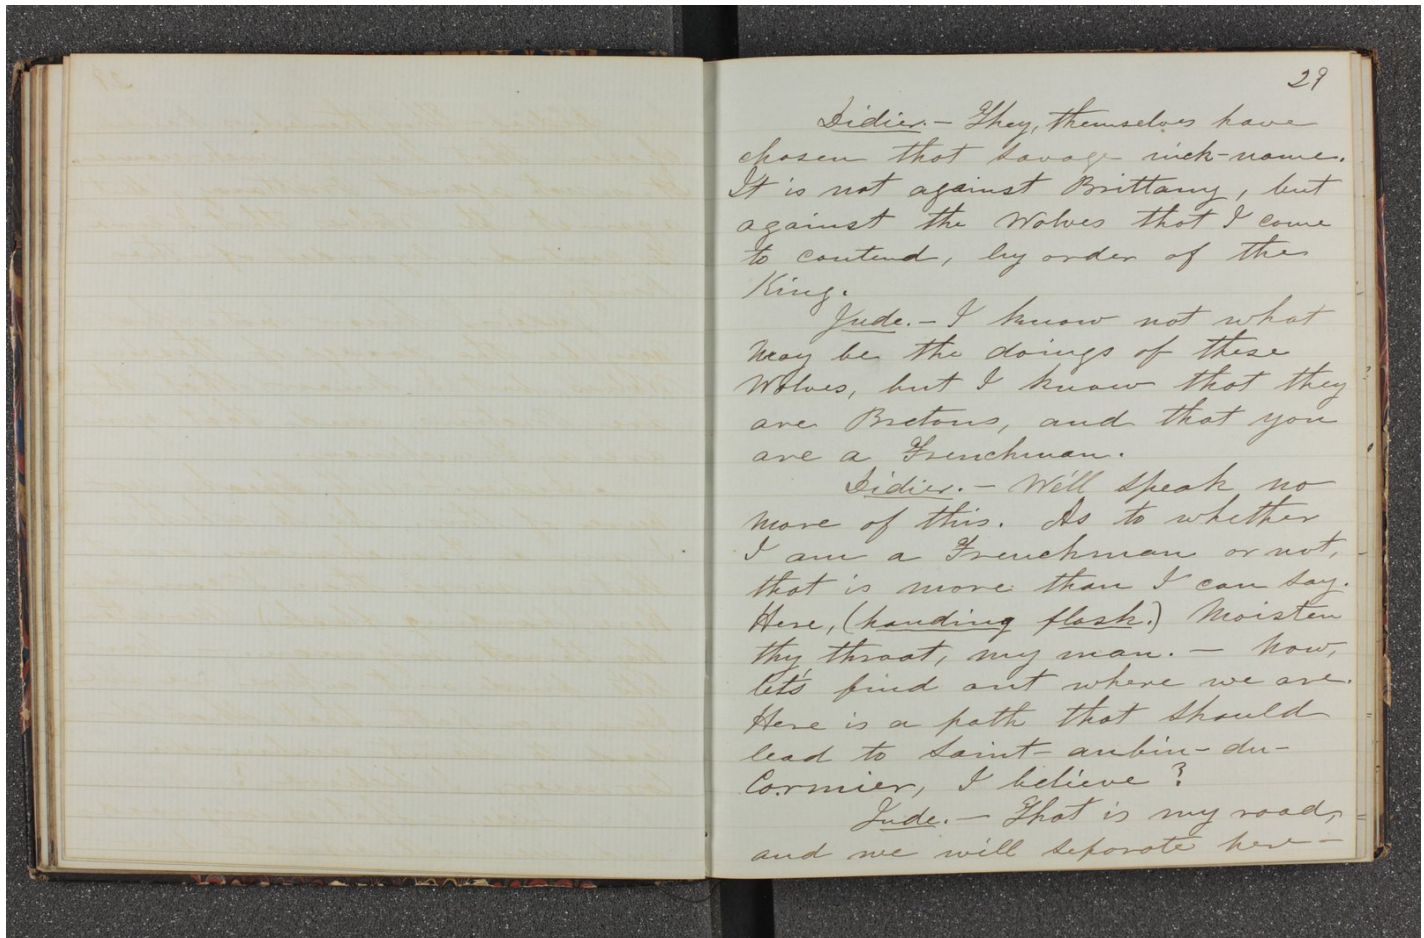 29
Didier. — They, themselves have
chosen that savage nick-name.
It is not against Brittany, but
against the Wolves that I come
to contend, by order of the
King.
Jude. — I know not what
may be the doings of these
Wolves, but I know that they
are Bretons, and that you
are a Frenchman.
Didier. — We'll speak no
more of this. As to whether
I am a Frenchman or not,
that is more than I can say.
Here, (handing flask.) Moisten
thy throat, my man. — Now,
let's find out where we are.
Here is a path that should
lead to Saint-aubin-du-
Cormier, I believe?
Jude. — That is my road,
and we will separate here —